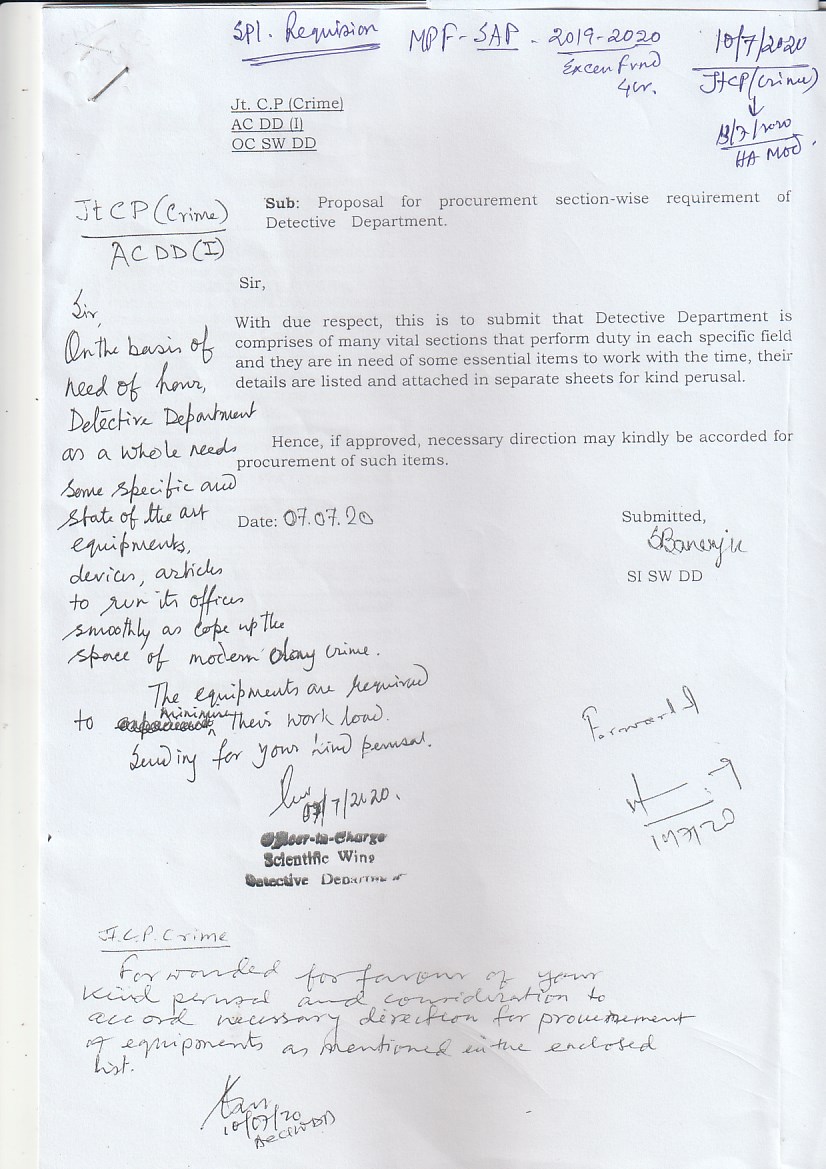 Spl. Requision MPF-SAP - 2019-2020
Excen Fund
4cr.
10/7/2020
JtCP(Crime)
13/7/2020
HA MOD.
Jt. C.P (Crime)
AC DD (I)
OC SW DD
JtCP (Crime)
ACDD(I)
Sub: Proposal for procurement section-wise requirement of
Detective Department.
Sir,
With due respect, this is to submit that Detective Department is
comprises of many vital sections that perform duty in each specific field
and they are in need of some essential items to work with the time, their
details are listed and attached in separate sheets for kind perusal.
Hence, if approved, necessary direction may kindly be accorded for
procurement of such items.
Date: 07.07.20
Submitted,
SBanerjee
SI SW DD
Sir,
On the basis of
need of hour,
Detective Department
as a whole needs
some specific and
state of the art
equipments,
devices, articles
to run its offices
smoothly as cope up the
space of modern crime.
The equipments are required
to minimize their work load.
Sending for your kind perusal.
07/7/2020.
Officer-in-Charge
Scientific Wing
Detective Department
Forwarded
10/7/20
Jt.C.P. Crime
Forwarded for favour of your
kind perusal and consideration to
accord necessary direction for procurement
of equipments as mentioned in the enclosed
list.
10/07/20